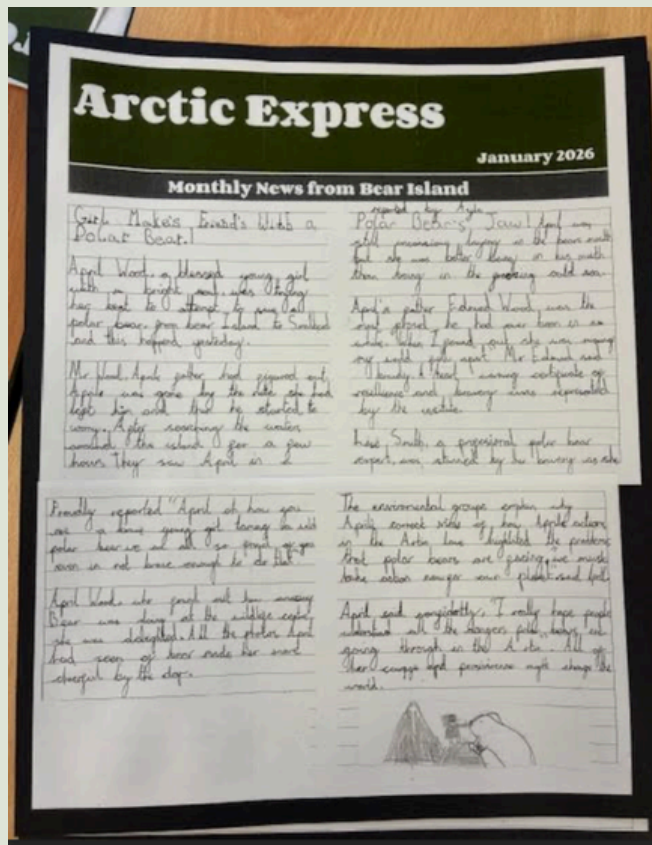 Arctic Express
January 2026
Monthly News from Bear Island
Girl Makes Friend's With a
Polar Bear!
April Wood, a blessed young girl
with a bright soul, was trying
her best to attempt to
polar bear from bear Island to
and this happend yesterday.
Mr Wood, April's father, had figured out
April was gone by the note she had
left him and that he started to
worry. After searching the water
around the island for a few
hours They saw April in a
reported by Ayla
Polar Bear's Jaw! April was
still laying in the bears mouth
but she was better in his mouth
than being in the
April's father Edmund Wood was the
most he had ever been in a
while. "When I found out she was
my world fell apart" Mr Edmund said
of
resilience and bravery was
by the
Smith, a profesional polar bear
expert, was stunned by her bravery as she
Proudly reported "April oh how you
are a brave young girl a wild
polar bear we are all so proud of you
even im not brave enough to do that."
April Wood, who found out how
Bear was doing at the wildlife centre,
she was delighted. All the photos April
had seen of bear made her more
cheerful by the day.
The enviromental groups explain why
April's of how April's action
in the Artic have highlighted the problems
that polar bears are facing, "we must
take action now,
April said confidently, "I really hope people
understand all the dangers polar bears are
going through in the Artic. All of
her courage and might change the
world.